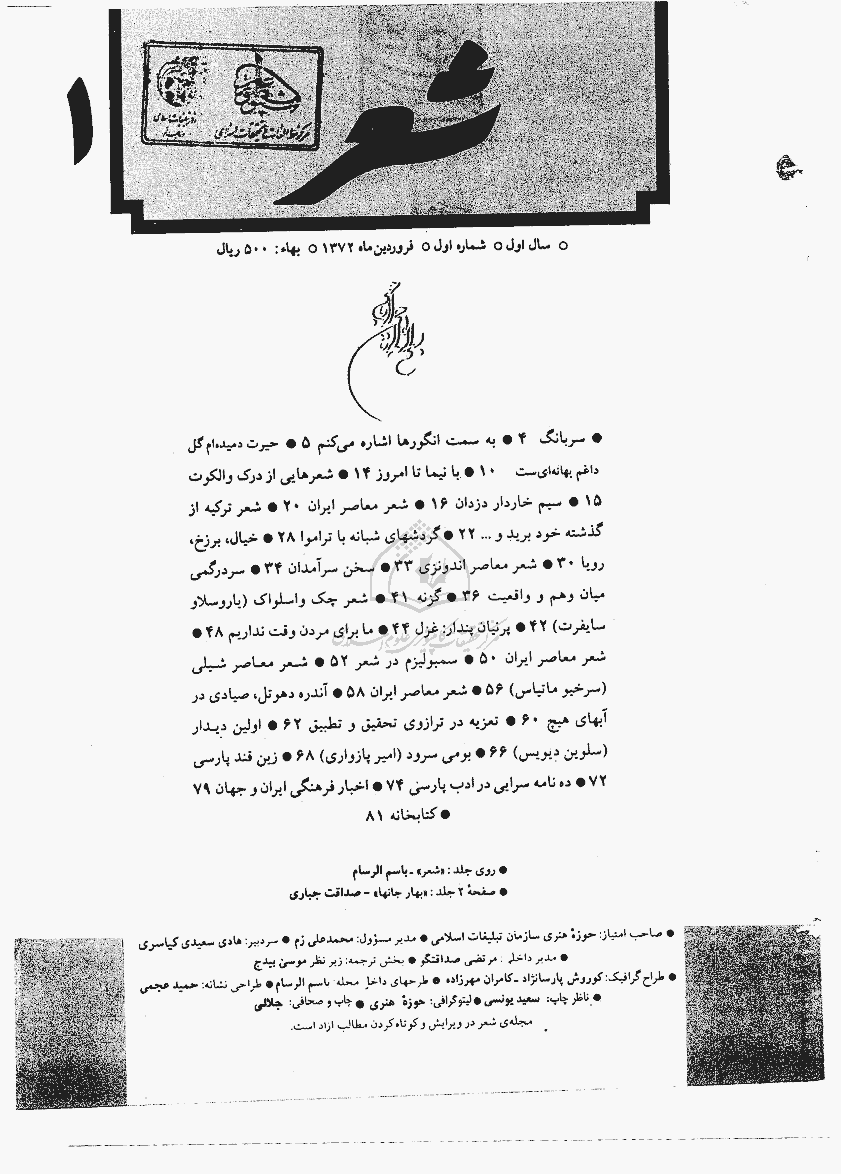 شعر
۱
○ سال اول ○ شماره اول ○ فروردین‌ماه ۱۳۷۲ ○ بهاء: ۵۰۰ ریال
● سربانگ ۴ ● به سمت انگورها اشاره می‌کنم ۵ ● حیرت دمیده‌ام گل
داغم بهانه‌ای‌ست ۱۰ ● با نیما تا امروز ۱۴ ● شعرهایی از درک والکوت
۱۵ ● سیم خاردار دزدان ۱۶ ● شعر معاصر ایران ۲۰ ● شعر ترکیه از
گذشته خود برید و ... ۲۲ ● گردشهای شبانه با تراموا ۲۸ ● خیال، برزخ،
رویا ۳۰ ● شعر معاصر اندونزی ۳۳ ● سخن سرآمدان ۳۴ ● سردرگمی
میان وهم و واقعیت ۳۶ ● گزنه ۴۱ ● شعر چک واسلواک (یاروسلاو
سایفرت) ۴۲ ● پرنیان پندار: غزل ۴۴ ● ما برای مردن وقت نداریم ۴۸ ●
شعر معاصر ایران ۵۰ ● سمبولیزم در شعر ۵۲ ● شعر معاصر شیلی
(سرخیو ماتیاس) ۵۶ ● شعر معاصر ایران ۵۸ ● آندره دهوتل، صیادی در
آبهای هیچ ۶۰ ● تعزیه در ترازوی تحقیق و تطبیق ۶۲ ● اولین دیدار
(سلوین دیویس) ۶۶ ● بومی سرود (امیر پازواری) ۶۸ ● زین قند پارسی
۷۲ ● ده نامه سرایی در ادب پارسی ۷۴ ● اخبار فرهنگی ایران و جهان ۷۹
● کتابخانه ۸۱
● روی جلد: «شعر» ـ باسم الرسام
● صفحهٔ ۲ جلد: «بهار جانها» ـ صداقت جباری
● صاحب امتیاز: حوزهٔ هنری سازمان تبلیغات اسلامی ● مدیر مسؤول: محمدعلی زم ● سردبیر: هادی سعیدی کیاسری
● مدیر داخلی: مرتضی صداقتگو ● بخش ترجمه: زیر نظر موسی بیدج
● طراح گرافیک: کوروش پارسانژاد ـ کامران مهرزاده ● طرحهای داخل مجله: باسم الرسام ● طراحی نشانه: حمید عجمی
● ناظر چاپ: سعید یونسی ● لیتوگرافی: حوزهٔ هنری ● چاپ و صحافی: جلالی
مجله‌ی شعر در ویرایش و کوتاه کردن مطالب آزاد است.